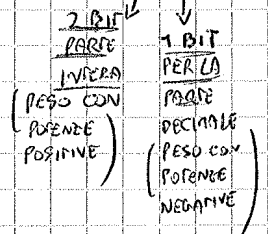 2 BIT
PARTE
INTERA
(PESO CON
POTENZE
POSITIVE)
1 BIT
PER LA
PARTE
DECIMALE
(PESO CON
POTENZE
NEGATIVE)